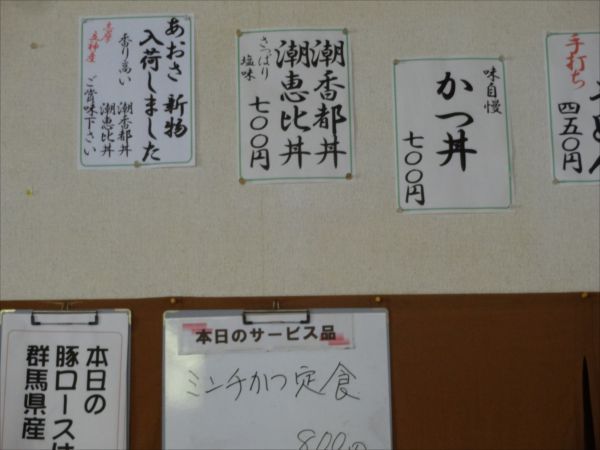 あおさ 新物
入荷しました
志摩
立神産
香り高い
潮香都丼
潮恵比丼
ご賞味下さい
潮香都丼
潮恵比丼
さっぱり
塩味
七〇〇円
味自慢
かつ丼
七〇〇円
手打ち
うどん
四五〇円
本日の
豚ロースは
群馬県産
本日のサービス品
ミンチかつ定食
800円